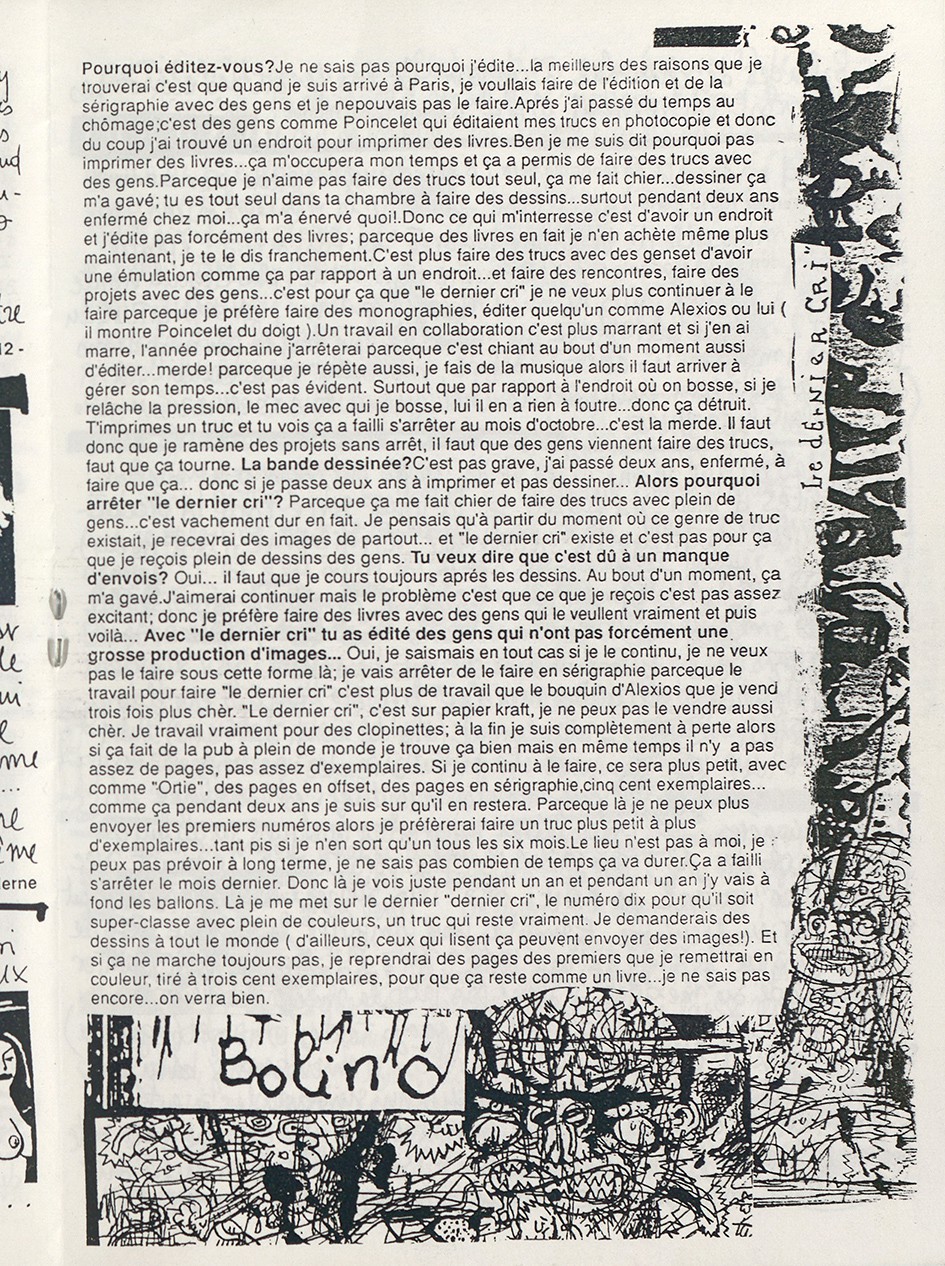 Pourquoi éditez-vous?Je ne sais pas pourquoi j'édite...la meilleurs des raisons que je
trouverai c'est que quand je suis arrivé à Paris, je voullais faire de l'édition et de la
sérigraphie avec des gens et je nepouvais pas le faire.Aprés j'ai passé du temps au
chômage;c'est des gens comme Poincelet qui éditaient mes trucs en photocopie et donc
du coup j'ai trouvé un endroit pour imprimer des livres.Ben je me suis dit pourquoi pas
imprimer des livres...ça m'occupera mon temps et ça a permis de faire des trucs avec
des gens.Parceque je n'aime pas faire des trucs tout seul, ça me fait chier...dessiner ça
m'a gavé; tu es tout seul dans ta chambre à faire des dessins...surtout pendant deux ans
enfermé chez moi...ça m'a énervé quoi!.Donc ce qui m'interresse c'est d'avoir un endroit
et j'édite pas forcément des livres; parceque des livres en fait je n'en achète même plus
maintenant, je te le dis franchement.C'est plus faire des trucs avec des genset d'avoir
une émulation comme ça par rapport à un endroit...et faire des rencontres, faire des
projets avec des gens...c'est pour ça que "le dernier cri" je ne veux plus continuer à le
faire parceque je préfère faire des monographies, éditer quelqu'un comme Alexios ou lui (
il montre Poincelet du doigt ).Un travail en collaboration c'est plus marrant et si j'en ai
marre, l'année prochaine j'arrêterai parceque c'est chiant au bout d'un moment aussi
d'éditer...merde! parceque je répète aussi, je fais de la musique alors il faut arriver à
gérer son temps...c'est pas évident. Surtout que par rapport à l'endroit où on bosse, si je
relâche la pression, le mec avec qui je bosse, lui il en a rien à foutre...donc ça détruit.
T'imprimes un truc et tu vois ça a failli s'arrêter au mois d'octobre...c'est la merde. Il faut
donc que je ramène des projets sans arrêt, il faut que des gens viennent faire des trucs,
faut que ça tourne. La bande dessinée?C'est pas grave, j'ai passé deux ans, enfermé, à
faire que ça... donc si je passe deux ans à imprimer et pas dessiner... Alors pourquoi
arrêter "le dernier cri"? Parceque ça me fait chier de faire des trucs avec plein de
gens...c'est vachement dur en fait. Je pensais qu'à partir du moment où ce genre de truc
existait, je recevrai des images de partout... et "le dernier cri" existe et c'est pas pour ça
que je reçois plein de dessins des gens. Tu veux dire que c'est dû à un manque
d'envois? Oui... il faut que je cours toujours aprés les dessins. Au bout d'un moment, ça
m'a gavé.J'aimerai continuer mais le problème c'est que ce que je reçois c'est pas assez
excitant; donc je préfère faire des livres avec des gens qui le veullent vraiment et puis
voilà... Avec "le dernièr cri" tu as édité des gens qui n'ont pas forcément une
grosse production d'images... Oui, je saismais en tout cas si je le continu, je ne veux
pas le faire sous cette forme là; je vais arrêter de le faire en sérigraphie parceque le
travail pour faire "le dernier cri" c'est plus de travail que le bouquin d'Alexios que je vend
trois fois plus chèr. "Le dernier cri", c'est sur papier kraft, je ne peux pas le vendre aussi
chèr. Je travail vraiment pour des clopinettes; à la fin je suis complètement à perte alors
si ça fait de la pub à plein de monde je trouve ça bien mais en même temps il n'y a pas
assez de pages, pas assez d'exemplaires. Si je continu à le faire, ce sera plus petit, avec
comme "Ortie", des pages en offset, des pages en sérigraphie,cinq cent exemplaires...
comme ça pendant deux ans je suis sur qu'il en restera. Parceque là je ne peux plus
envoyer les premiers numéros alors je préfèrerai faire un truc plus petit à plus
d'exemplaires...tant pis si je n'en sort qu'un tous les six mois.Le lieu n'est pas à moi, je
peux pas prévoir à long terme, je ne sais pas combien de temps ça va durer.Ça a failli
s'arrêter le mois dernier. Donc là je vois juste pendant un an et pendant un an j'y vais à
fond les ballons. Là je me met sur le dernier "dernier cri", le numéro dix pour qu'il soit
super-classe avec plein de couleurs, un truc qui reste vraiment. Je demanderais des
dessins à tout le monde ( d'ailleurs, ceux qui lisent ça peuvent envoyer des images!). Et
si ça ne marche toujours pas, je reprendrai des pages des premiers que je remettrai en
couleur, tiré à trois cent exemplaires, pour que ça reste comme un livre...je ne sais pas
encore...on verra bien.
Le dErniEr Cri"
Bolino